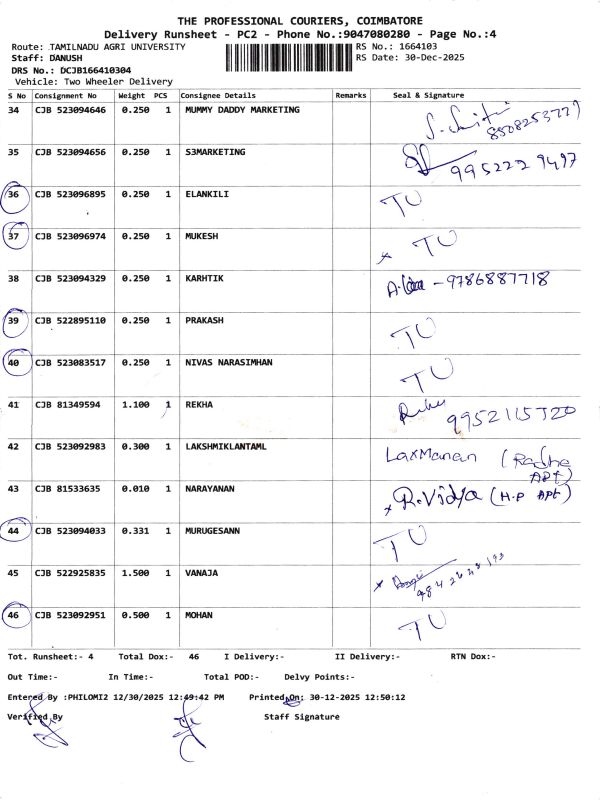 THE PROFESSIONAL COURIERS, COIMBATORE
Delivery Runsheet - PC2 - Phone No.:9047080280 - Page No.:4
Route: TAMILNADU AGRI UNIVERSITY RS No.: 1664103
Staff: DANUSH RS Date: 30-Dec-2025
DRS No.: DCJB166410304
Vehicle: Two Wheeler Delivery
S No Consignment No Weight PCS Consignee Details Remarks Seal & Signature
34 CJB 523094646 0.250 1 MUMMY DADDY MARKETING
35 CJB 523094656 0.250 1 S3MARKETING 995222 9497
36 CJB 523096895 0.250 1 ELANKILI TU
37 CJB 523096974 0.250 1 MUKESH x TU
38 CJB 523094329 0.250 1 KARHTIK - 9786887718
39 CJB 522895110 0.250 1 PRAKASH TU
40 CJB 523083517 0.250 1 NIVAS NARASIMHAN TU
41 CJB 81349594 1.100 1 REKHA 9952115320
42 CJB 523092983 0.300 1 LAKSHMIKLANTAML LaxManan (Radha APt)
43 CJB 81533635 0.010 1 NARAYANAN x R.Vidya (H.P APt)
44 CJB 523094033 0.331 1 MURUGESANN TU
45 CJB 522925835 1.500 1 VANAJA x
46 CJB 523092951 0.500 1 MOHAN TU
Tot. Runsheet:- 4 Total Dox:- 46 I Delivery:- II Delivery:- RTN Dox:-
Out Time:- In Time:- Total POD:- Delvy Points:-
Entered By :PHILOMI2 12/30/2025 12:49:42 PM Printed On: 30-12-2025 12:50:12
Verified By Staff Signature